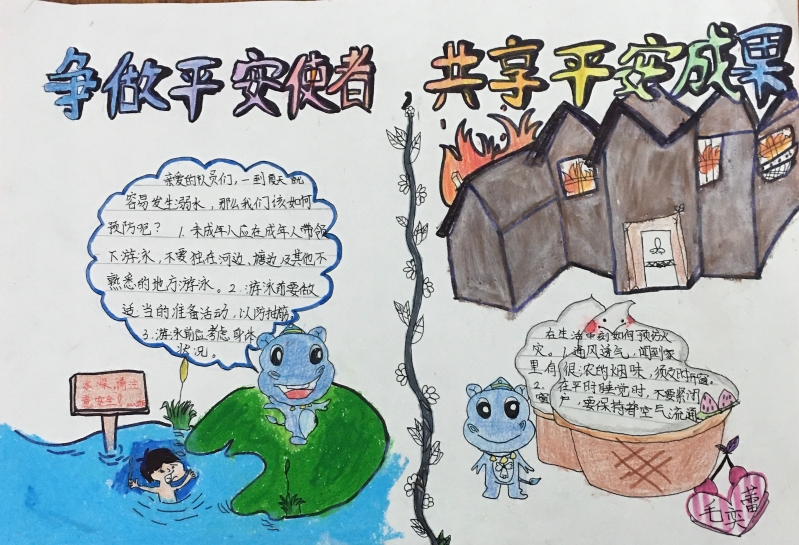 争做平安使者
共享平安成果
亲爱的队员们，一到夏天就
容易发生弱水，那么我们该如何
预防呢？1.未成年人应在成年人带领
下游泳，不要独在河边，塘边及其他不
熟悉的地方游泳。2.游泳前要做
适当的准备活动，以防抽筋
3.游泳前应考虑身体
状况。
水深，请注
意安全！
在生活中刻如何预防火
灾。1.通风透气，闻到家
里有很浓的烟味，须及时开窗。
2.在平时睡觉时，不要紧闭
窗户，要保持着空气流通
毛奕蕾